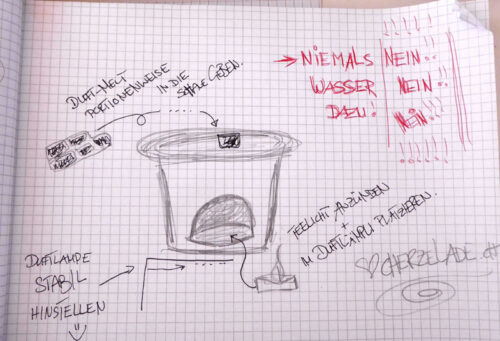 DUFT-MELT
PORTIONENWEISE
IN DIE
SCHALE GEBEN.
→ NIEMALS
WASSER
DAZU!
NEIN!!
NEIN!!
NEIN!!
!!!!!!
TEELICHT ANZÜNDEN
+
IM DUFTLÄMPLI PLATZIEREN.
DUFTLAMPE
STABIL
HINSTELLEN
♡CHERZELADE.CH